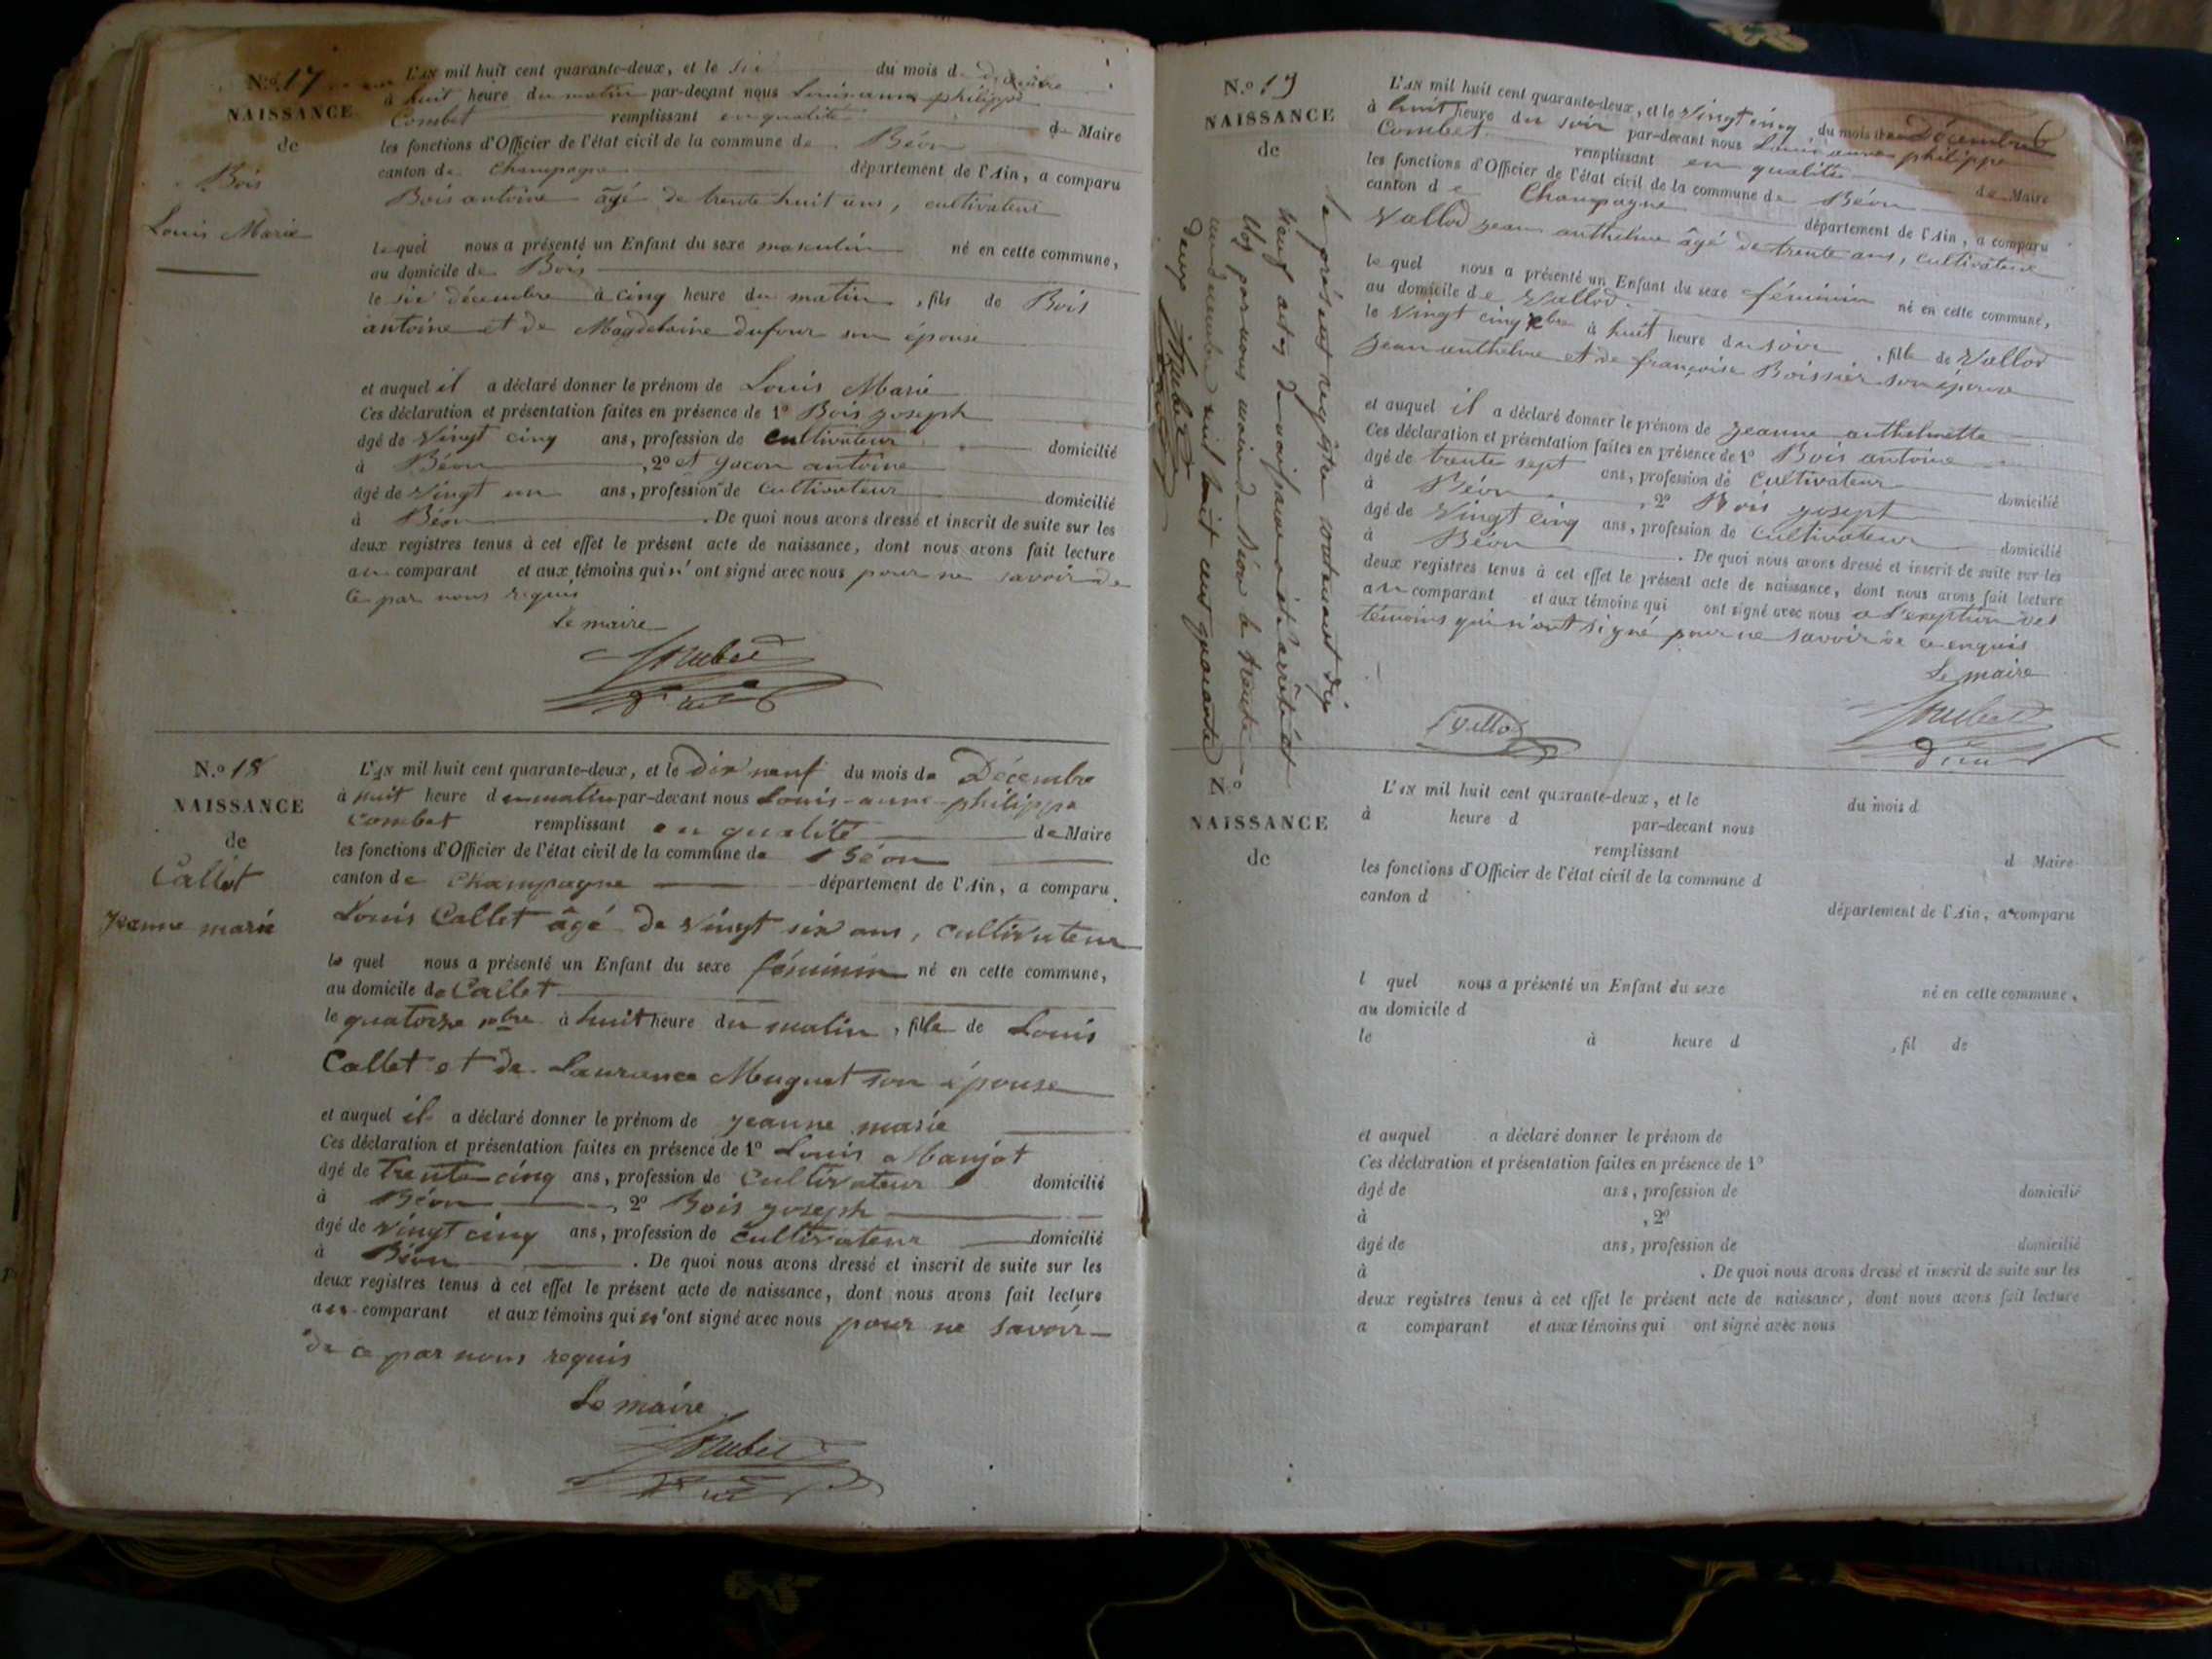 N.º 17
NAISSANCE
de
Bois
Louis Marie
L'AN mil huit cent quarante-deux, et le six du mois de décembre
à huit heure du matin par-devant nous Louis anne philippe
Combet remplissant en qualité de Maire
les fonctions d'Officier de l'état civil de la commune de Béon
canton de Champagne département de l'Ain, a comparu
Bois antoine âgé de trente huit ans, cultivateur
lequel nous a présenté un Enfant du sexe masculin né en cette commune,
au domicile de Bois
le six décembre à cinq heure du matin, fils de Bois
antoine et de Magdelaine dufour son épouse
et auquel il a déclaré donner le prénom de Louis Marie
Ces déclaration et présentation faites en présence de 1º Bois joseph
âgé de vingt cinq ans, profession de cultivateur domicilié
à Béon, 2º et jacon antoine
âgé de vingt un ans, profession de cultivateur domicilié
à Béon. De quoi nous avons dressé et inscrit de suite sur les
deux registres tenus à cet effet le présent acte de naissance, dont nous avons fait lecture
au comparant et aux témoins qui n'ont signé avec nous pour ne savoir de
ce par nous requis
Le maire
N.º 18
NAISSANCE
de
Callet
jeanne marie
L'AN mil huit cent quarante-deux, et le dix neuf du mois de Décembre
à huit heure du matin par-devant nous Louis-anne-philippe
Combet remplissant en qualité de Maire
les fonctions d'Officier de l'état civil de la commune de Béon
canton de Champagne département de l'Ain, a comparu
Louis Callet âgé de vingt six ans, cultivateur
le quel nous a présenté un Enfant du sexe féminin né en cette commune,
au domicile de Callet
le quatorze xbre à huit heure du matin, fille de Louis
Callet et de Laurence Muguet son épouse
et auquel il a déclaré donner le prénom de jeanne marie
Ces déclaration et présentation faites en présence de 1º Louis Manjot
âgé de trente cinq ans, profession de Cultivateur domicilié
à Béon, 2º Bois joseph
âgé de vingt cinq ans, profession de cultivateur domicilié
à Béon. De quoi nous avons dressé et inscrit de suite sur les
deux registres tenus à cet effet le présent acte de naissance, dont nous avons fait lecture
au comparant et aux témoins qui n'ont signé avec nous pour ne savoir
de ce par nous requis
Le maire
N.º 19
NAISSANCE
de
Le présent registre contenant dix
neuf actes de naissance a été arrêté et
clos par nous maire de Béon le trente
un décembre mil huit cent quarante
deux
L'AN mil huit cent quarante-deux, et le vingt cinq du mois de Décembre
à huit heure du soir par-devant nous Louis anne philippe
Combet remplissant en qualité de Maire
les fonctions d'Officier de l'état civil de la commune de Béon
canton de Champagne département de l'Ain, a comparu
Vallod jean anthelme âgé de trente ans, cultivateur
le quel nous a présenté un Enfant du sexe féminin né en cette commune,
au domicile de Vallod
le vingt cinq xbre à huit heure du soir, fille de Vallod
jean anthelme et de françoise Boissier son épouse
et auquel il a déclaré donner le prénom de jeanne anthelmette
Ces déclaration et présentation faites en présence de 1º Bois antoine
âgé de trente sept ans, profession de Cultivateur domicilié
à Béon, 2º Bois joseph
âgé de vingt cinq ans, profession de cultivateur domicilié
à Béon. De quoi nous avons dressé et inscrit de suite sur les
deux registres tenus à cet effet le présent acte de naissance, dont nous avons fait lecture
au comparant et aux témoins qui ont signé avec nous a l'exeption des
témoins qui n'ont signé pour ne savoir de ce enquis
Le maire
N.º
NAISSANCE
de
L'AN mil huit cent quarante-deux, et le du mois d
à heure d par-devant nous
remplissant d Maire
les fonctions d'Officier de l'état civil de la commune d
canton d département de l'Ain, a comparu
l quel nous a présenté un Enfant du sexe né en cette commune,
au domicile d
le à heure d, fil de
et auquel a déclaré donner le prénom de
Ces déclaration et présentation faites en présence de 1º
âgé de ans, profession de domicilié
à, 2º
âgé de ans, profession de domicilié
à. De quoi nous avons dressé et inscrit de suite sur les
deux registres tenus à cet effet le présent acte de naissance, dont nous avons fait lecture
a comparant et aux témoins qui ont signé avec nous